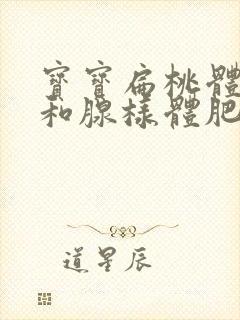 寶寶扁桃體
和腺樣體肥
道星辰